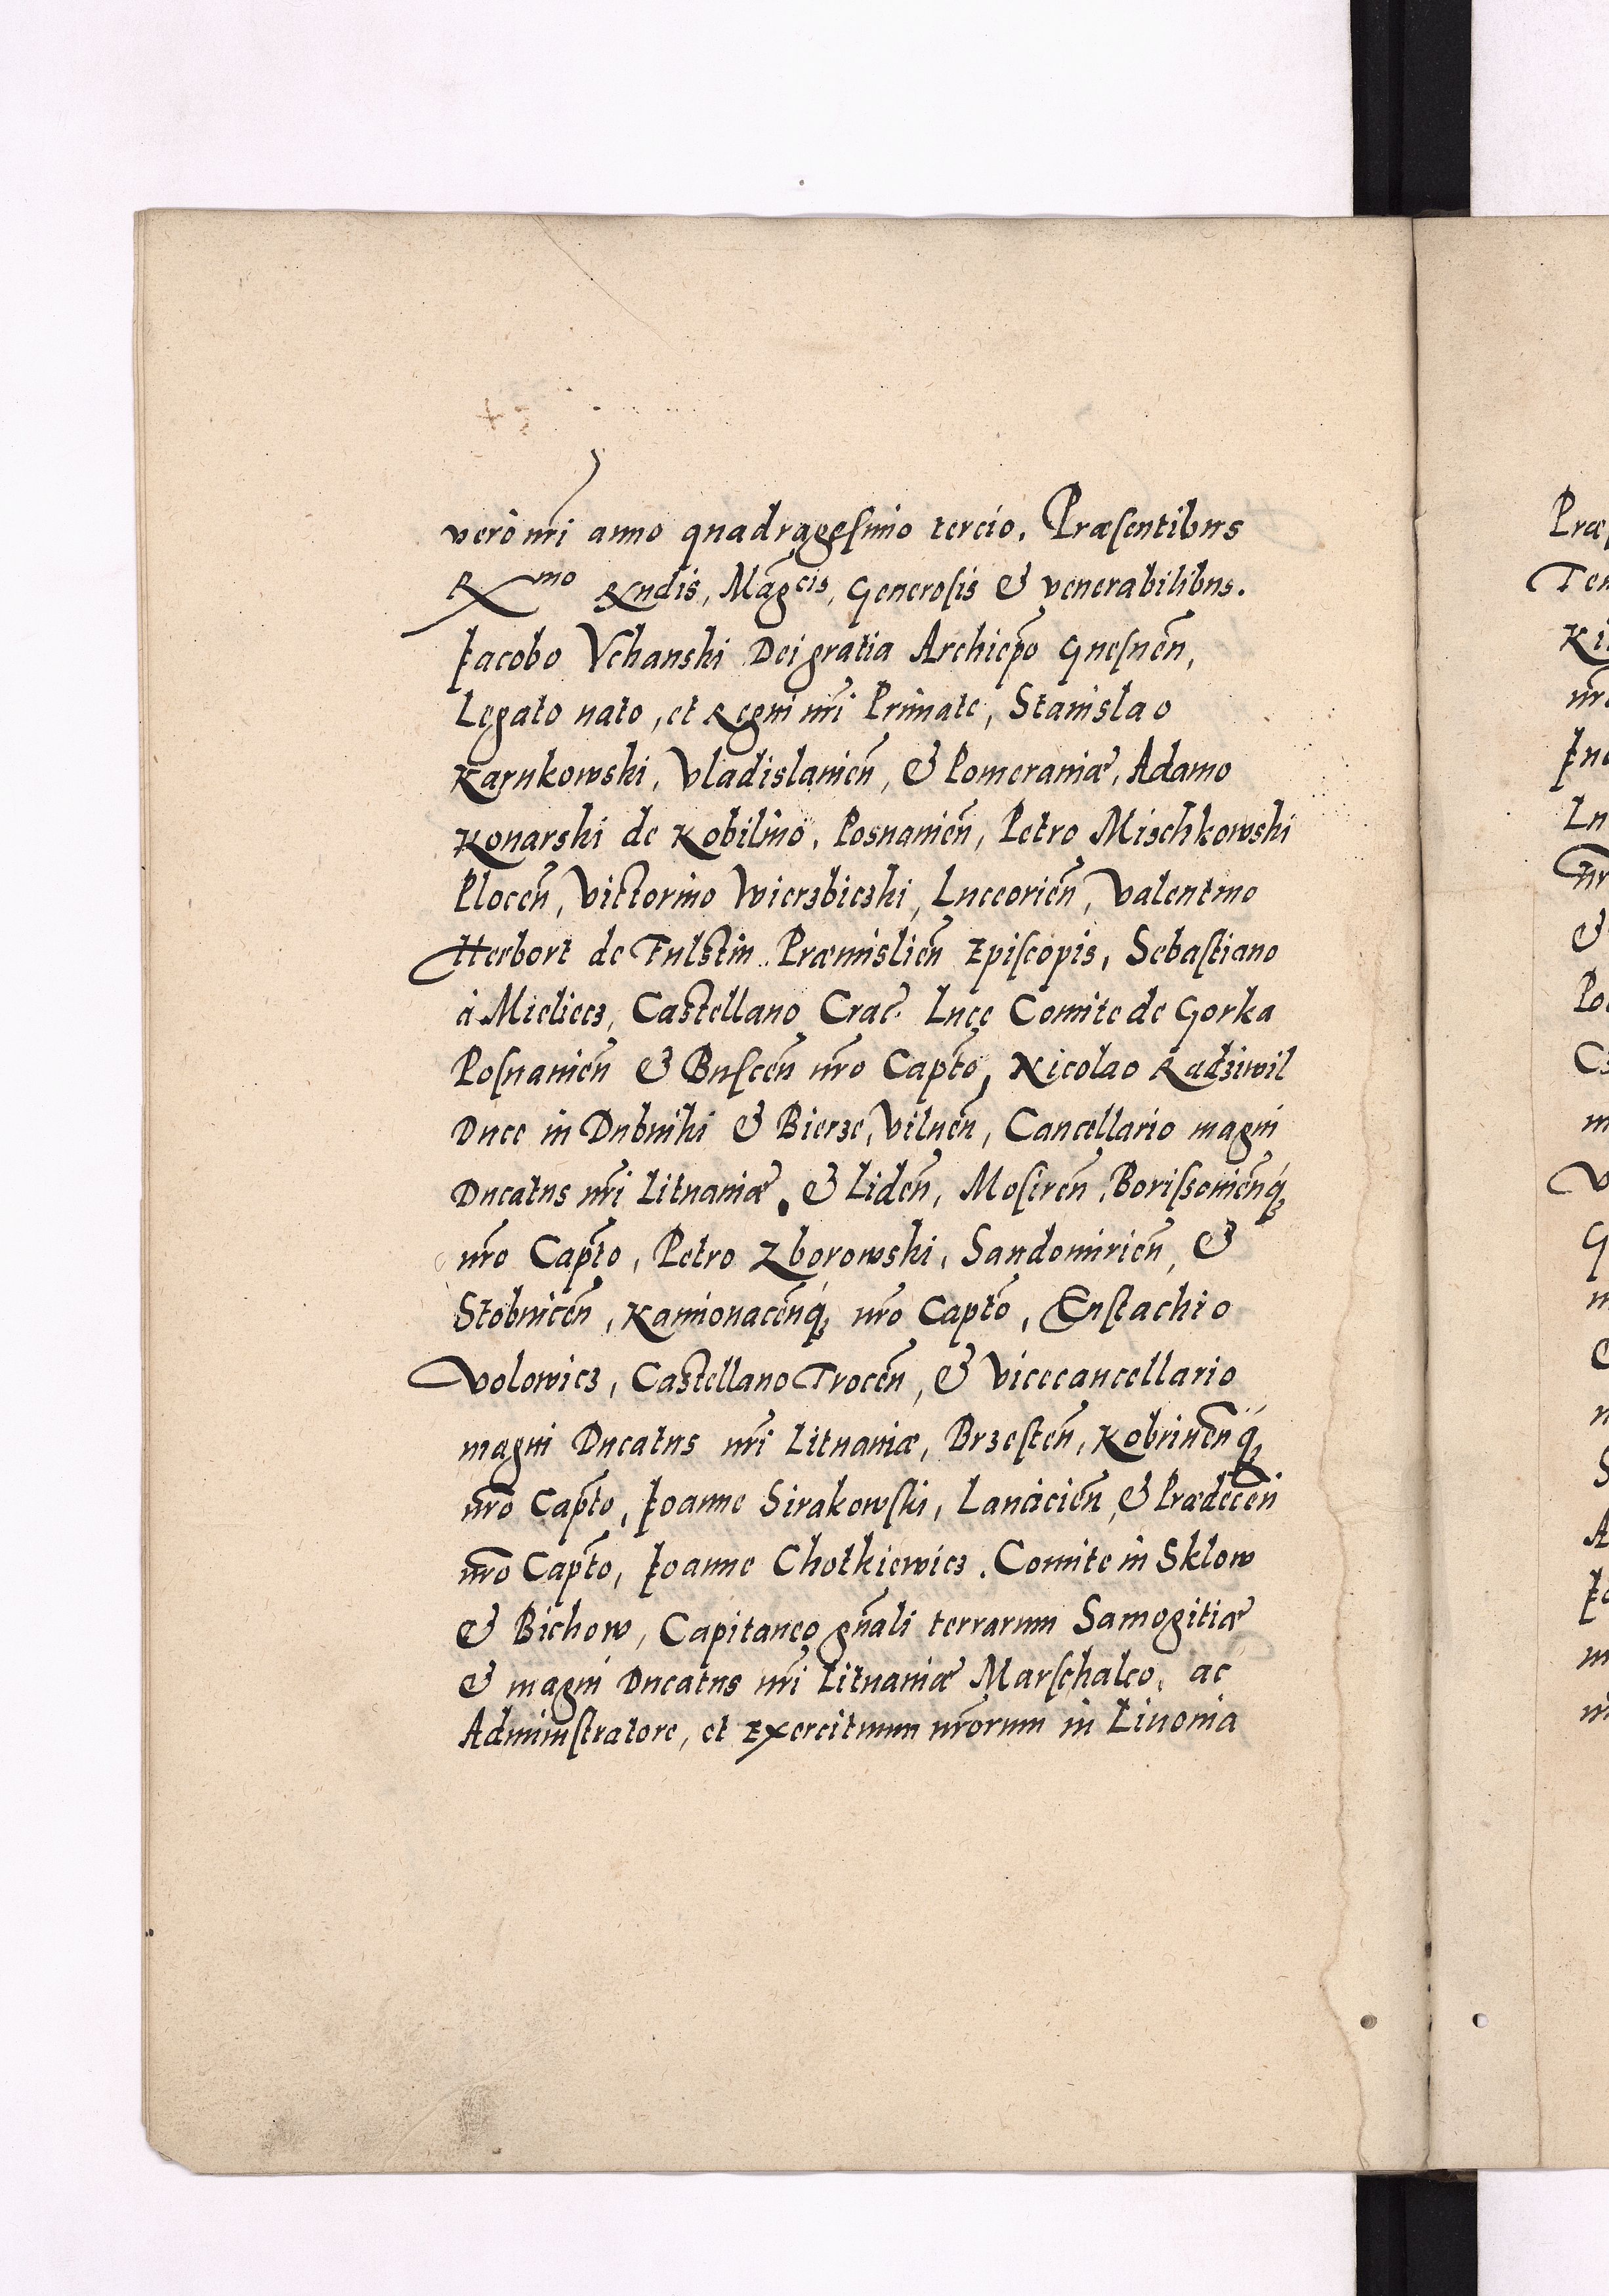 verò nr̃i anno quadragesimo tercio. Præsentibus
Rmo Rndis, Mãgcis, Generosis & venerabilibus.
Jacobo Vchanski Dei gratia Archiep̃o Gnesneñ,
Legato nato, et Regni nr̃i Primate, Stanislao
Karnkowski, Vladislauieñ, & Pomeraniæ, Adamo
Konarski de Kobilino, Posnanieñ, Petro Mischkowski
Ploceñ, Victorino Wierzbieski, Luceorieñ, Valentino
Herbort de Fulstin Præmislieñ Episcopis, Sebastiano
à Mieliecz, Castellano Crac̃. Lucę Comite de Gorka
Posnanieñ & Busceñ nr̃o Capt̃o, Nicolao Radziwil
Duce in Dubniki & Bierze, Vilneñ, Cancellario magni
Ducatus nr̃i Lituaniæ, & Lideñ, Mosireñ, Borissouieñq́ꝫ
nr̃o Capt̃o, Petro Zborowski, Sandomirieñ, &
Stobniceñ, Kamionaceñq́ꝫ nr̃o Capt̃o, Eustachio
Volowicz, Castellano Troceñ, & Vicecancellario
magni Ducatus nr̃i Lituaniæ, Brzesteñ, Kobrineñq́ꝫ
nr̃o Capt̃o, Joanne Sirakowski, Lancicieñ, & Prædeceñ
nr̃o Capt̃o, Joanne Chotkiewicz. Comite in Sklow
& Bichow, Capitaneo gñali terrarum Samogitiæ
& magni Ducatus nr̃i Lituaniæ Marschalco, ac
Administratore, et Exercituum nr̃orum in Liuonia